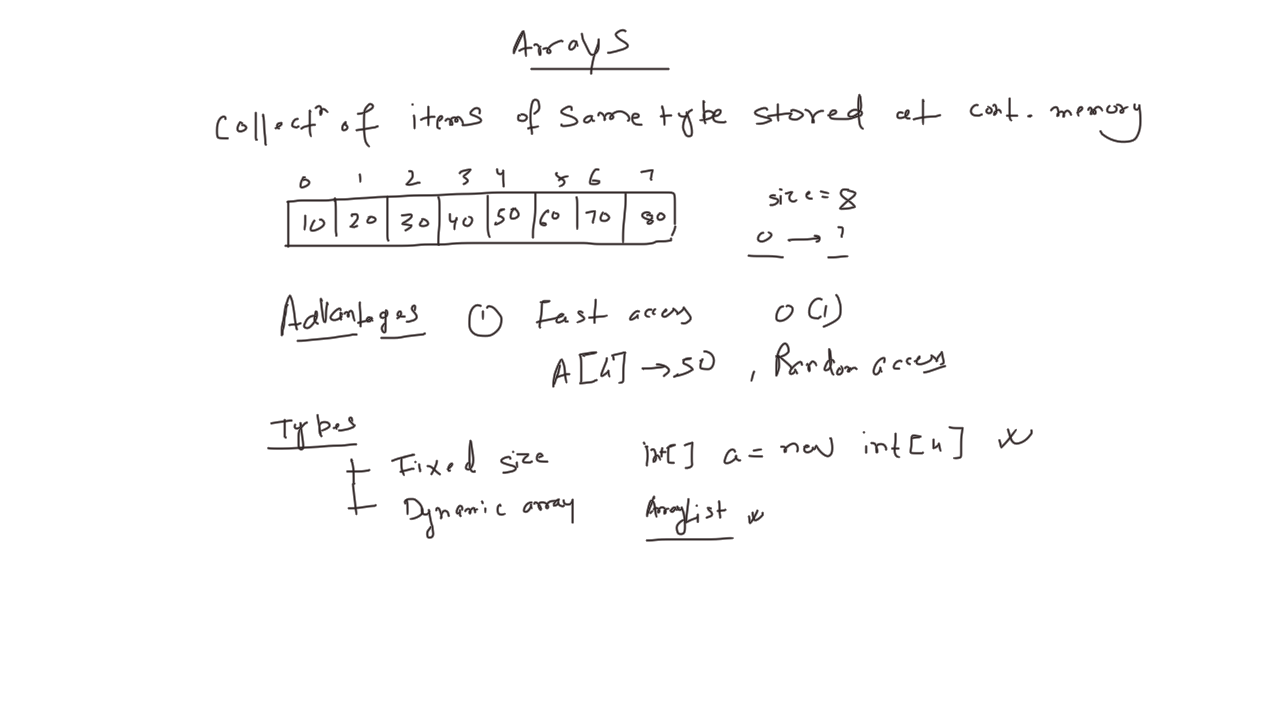 Arrays
Collectn of items of same type stored at cont. memory
0 1 2 3 4 5 6 7
10 20 30 40 50 60 70 80
size = 8
0 → 7
Advantages ① Fast access O(1)
A[4] → 50 , Random access
Types
Fixed size int[] a = new int[4]
Dynamic array ArrayList